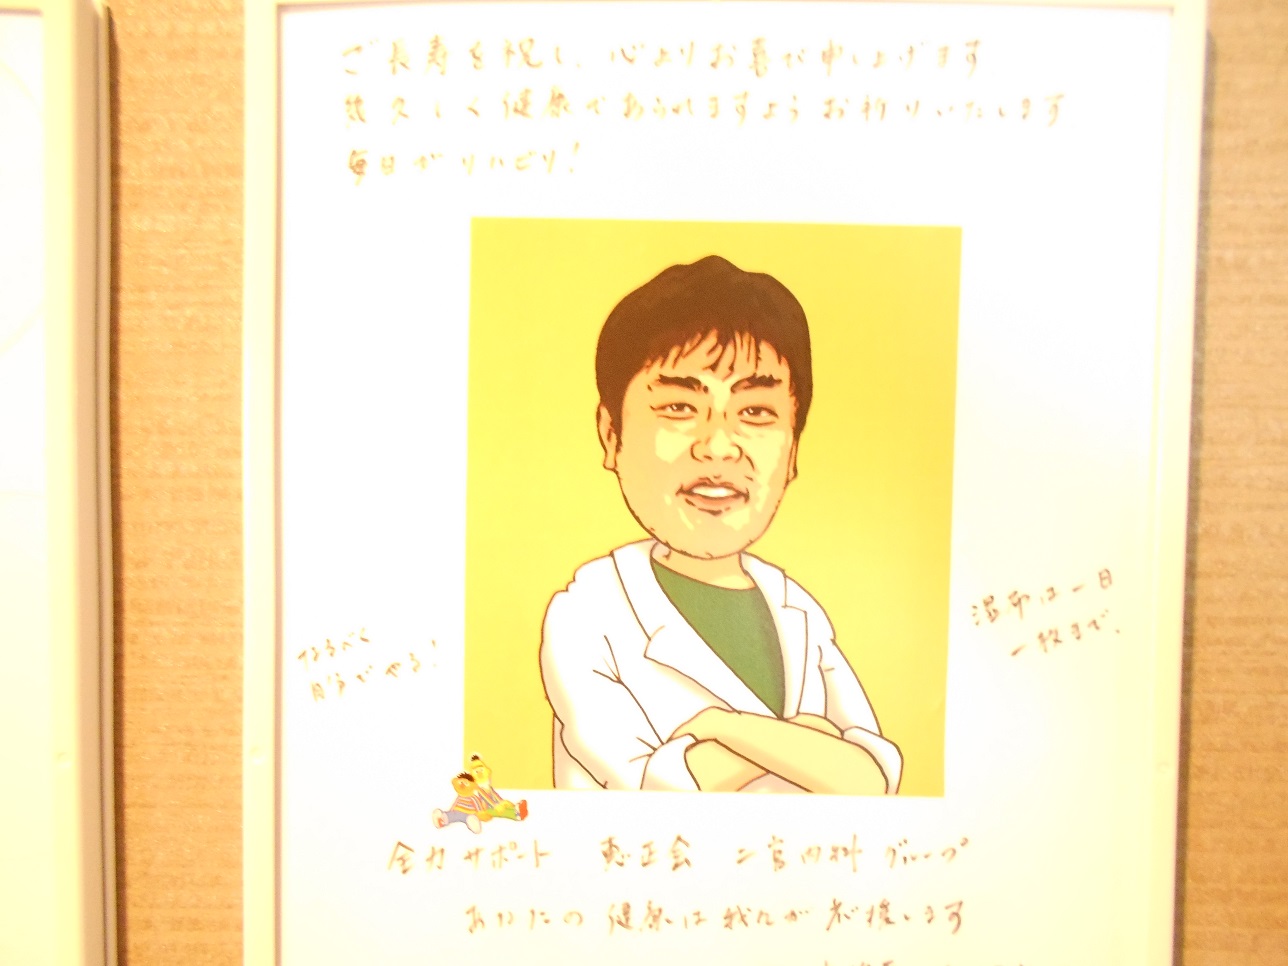 ご長寿を祝し、心よりお喜び申し上げます
幾久しく健康であられますようお祈りいたします
毎日がリハビリ!
なるべく
自分でやる!
湿布は一日
一枚まで.
全力サポート 恵正会 二宮内科 グループ
あなたの健康は我々が応援します